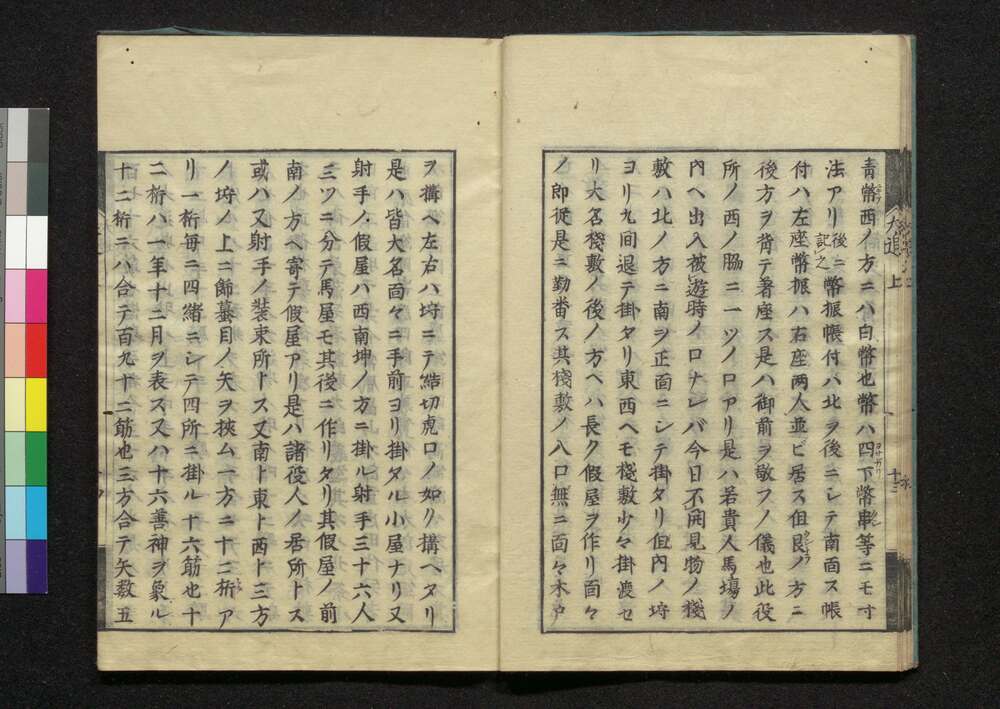 青幣西ノ方ニハ白幣也幣ハ四下幣串等ニモ寸
法アリ後ニ記之幣振帳付ハ北ヲ後ニシテ南面ス帳
付ハ左座幣振ハ右座两人並ビ居ス但艮ノ方ニ
後方ヲ背テ著座ス是ハ御前ヲ敬フノ儀也此役
所ノ西ノ脇ニ一ツノ口アリ是ハ若貴人馬場ノ
内ヘ出入被遊時ノ口ナレバ今日不開見物ノ棧
敷ハ北ノ方ニ南ヲ正面ニシテ掛タリ但内ノ埒
ヨリ九間退テ掛タリ東西ヘモ棧敷少々掛渡セ
リ大名棧敷ノ後ノ方ヘハ長ク假屋ヲ作リ面々
ノ郎従是ニ勤番ス其棧敷ノ入口無ニ面々木戸
ヲ搆ヘ左右ハ埒ニテ結切虎口ノ如ク搆ヘタリ
是ハ皆大名面々ニ手前ヨリ掛タル小屋ナリ又
射手ノ假屋ハ西南坤ノ方ニ掛ル射手三十六人
三ツニ分テ馬屋モ其後ニ作リタリ其假屋ノ前
南ノ方ヘ寄テ假屋アリ是ハ諸役人ノ居所トス
或ハ又射手ノ装束所トス又南ト東ト西ト三方
ノ埒ノ上ニ餝蟇目ノ矢ヲ挾ム一方ニ十二桁ア
リ一桁毎ニ四緒ニシテ四所ニ掛ル十六筋也十
二桁ハ一年十二月ヲ表ス又ハ十六善神ヲ象ル
十二桁ニハ合テ百九十二筋也三方合テ矢数五
犬追 上
十三